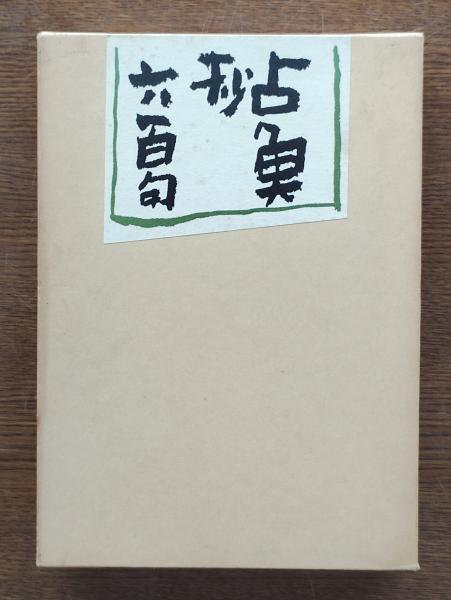 占魚
六百句